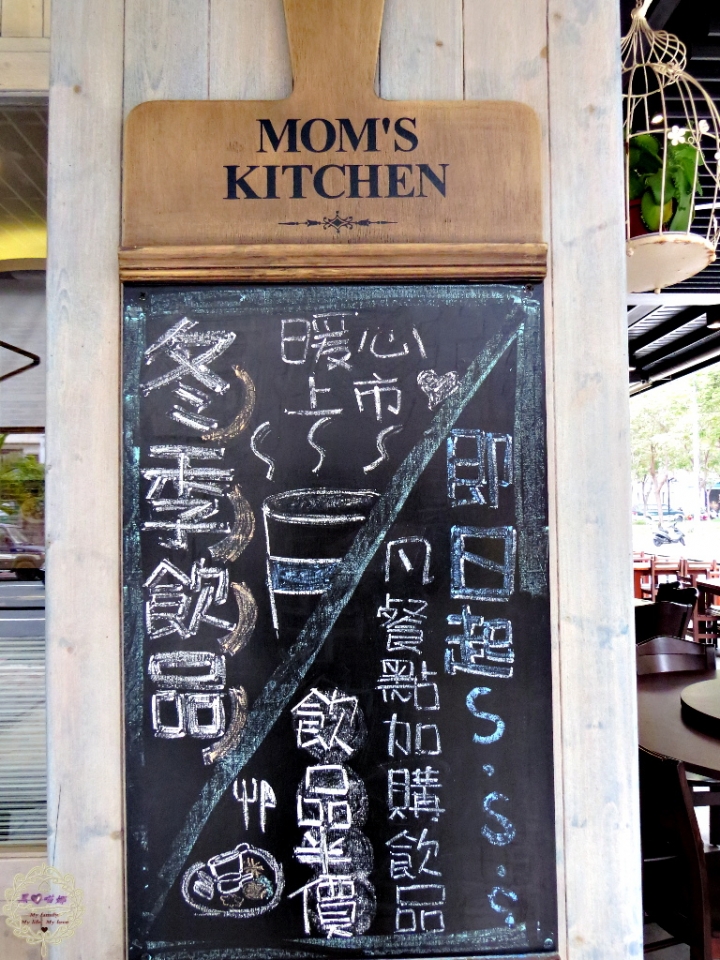 MOM'S
KITCHEN
冬季飲品
暖心
上市
即日起
S.S.S
凡餐點加購飲品
飲品半價
My family
My life. My love